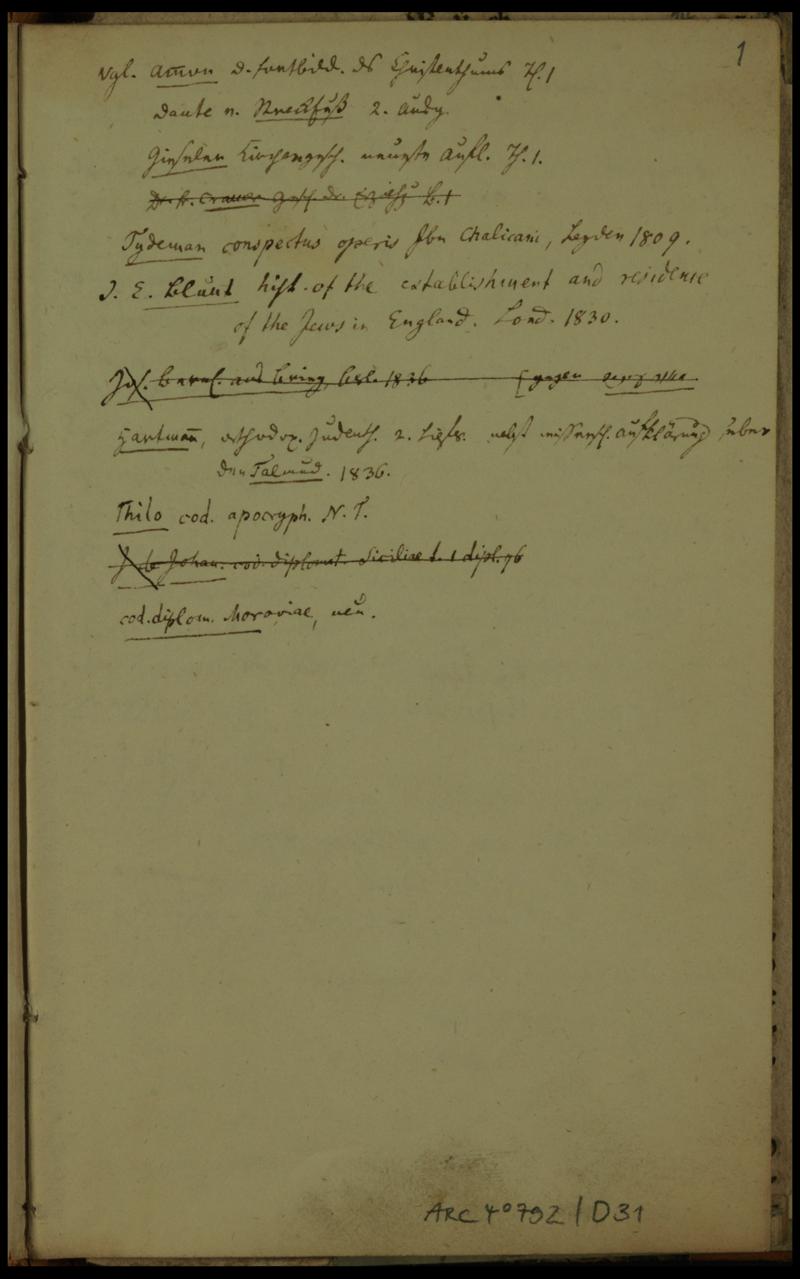 1
vgl. Am̅on d. Fortbild. des Christenthums Th. 1
Dante v. Streckfuß 2. Ausg.
Gieseler Kirchengesch. neueste Aufl. Th. 1.
Dr. Fr. Cramer Gesch. der Erziehg B. 1
Tydeman conspectus operis Ibn Chalicani, Leyden 1809.
J. E. Blunt hist. of the establishment and residence
of the Jews in England. Lond. 1830.
Jos. aus Brieg 1836 (gegen
Hartman̅, orthodox. Judenth. 2. nebst wissensch. Aufklärung über
den Talmud. 1836.
Thilo cod. apocryph. N. T.
Johan. cod. diplomat. Siciliae t. 1 dipl. 76
cod. diplom. Moraviae, neu.
ARC 4° 792 / D31